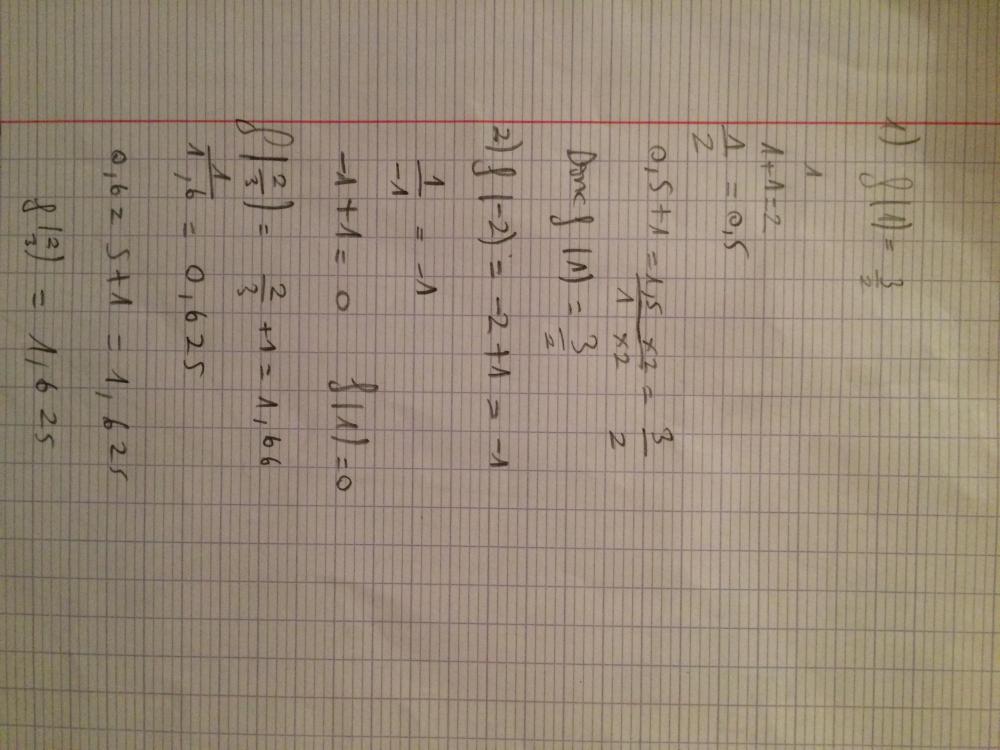 1) f(1) = 3/2
1
1+1=2
1/2 = 0,5
0,5+1 = 1,5/1 ×2/×2 = 3/2
Donc f(1) = 3/2
2) f(-2) = -2+1 = -1
1/-1 = -1
-1+1 = 0 f(1)=0
f(2/3) = 2/3 +1 = 1,66
1/1,6 = 0,625
0,625+1 = 1,625
f(2/3) = 1,625